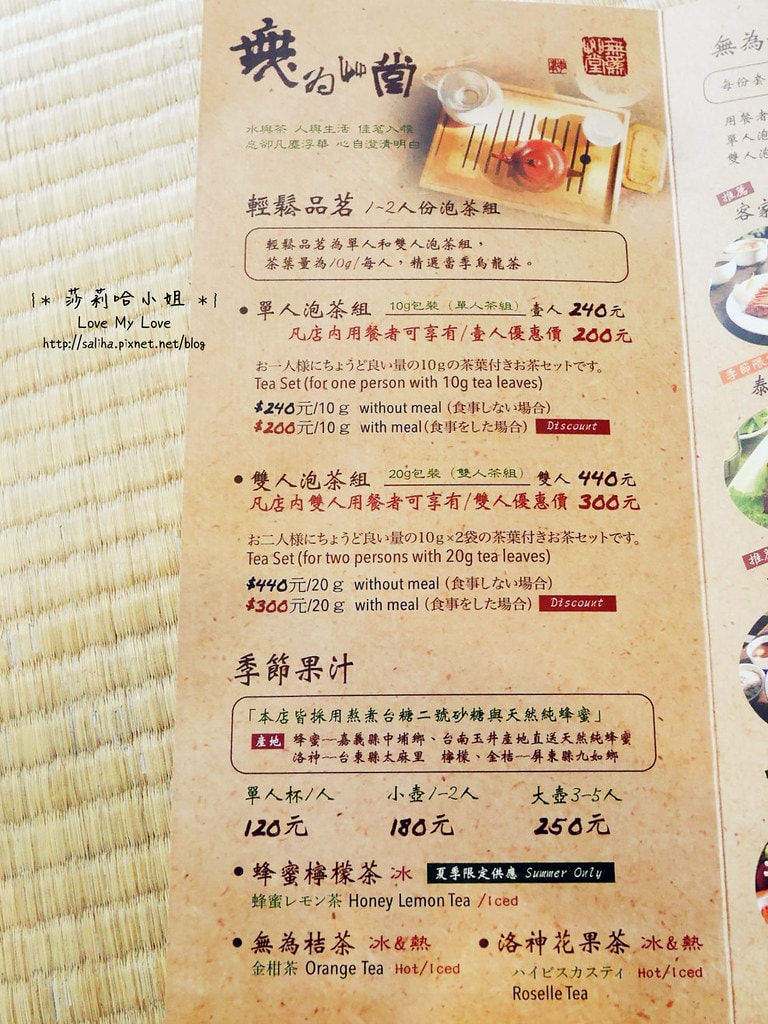 無為艸堂
無為艸堂
水與茶 人與生活 佳茗入懷
忘卻凡塵浮華 心自澄清明白
輕鬆品茗 1~2人份泡茶組
輕鬆品茗為單人和雙人泡茶組，
茶葉量為10g/每人，精選當季烏龍茶。
{* 莎莉哈小姐 *}
Love My Love
http://saliha.pixnet.net/blog
• 單人泡茶組 10g包裝（單人茶組） 壹人 240元
凡店內用餐者可享有/壹人優惠價 200元
お一人様にちょうど良い量の10gの茶葉付きお茶セットです。
Tea Set (for one person with 10g tea leaves)
$240元/10g without meal (食事しない場合)
$200元/10g with meal (食事をした場合) Discount
• 雙人泡茶組 20g包裝（雙人茶組） 雙人 440元
凡店內雙人用餐者可享有/雙人優惠價 300元
お二人様にちょうど良い量の10g×2袋の茶葉付きお茶セットです。
Tea Set (for two persons with 20g tea leaves)
$440元/20g without meal (食事しない場合)
$300元/20g with meal (食事をした場合) Discount
季節果汁
「本店皆採用熬煮台糖二號砂糖與天然純蜂蜜」
產地 蜂蜜—嘉義縣中埔鄉、台南玉井產地直送天然純蜂蜜
洛神—台東縣太麻里 檸檬、金桔—屏東縣九如鄉
單人杯/1人 小壺/1-2人 大壺3-5人
120元 180元 250元
• 蜂蜜檸檬茶 冰 夏季限定供應 Summer Only
蜂蜜レモン茶 Honey Lemon Tea /Iced
• 無為桔茶 冰&熱 • 洛神花果茶 冰&熱
金柑茶 Orange Tea Hot/Iced ハイビスカスティ Hot/Iced
Roselle Tea
無為
每份套
用餐者
單人泡
雙人泡
推薦
客家
季節限
泰
推薦